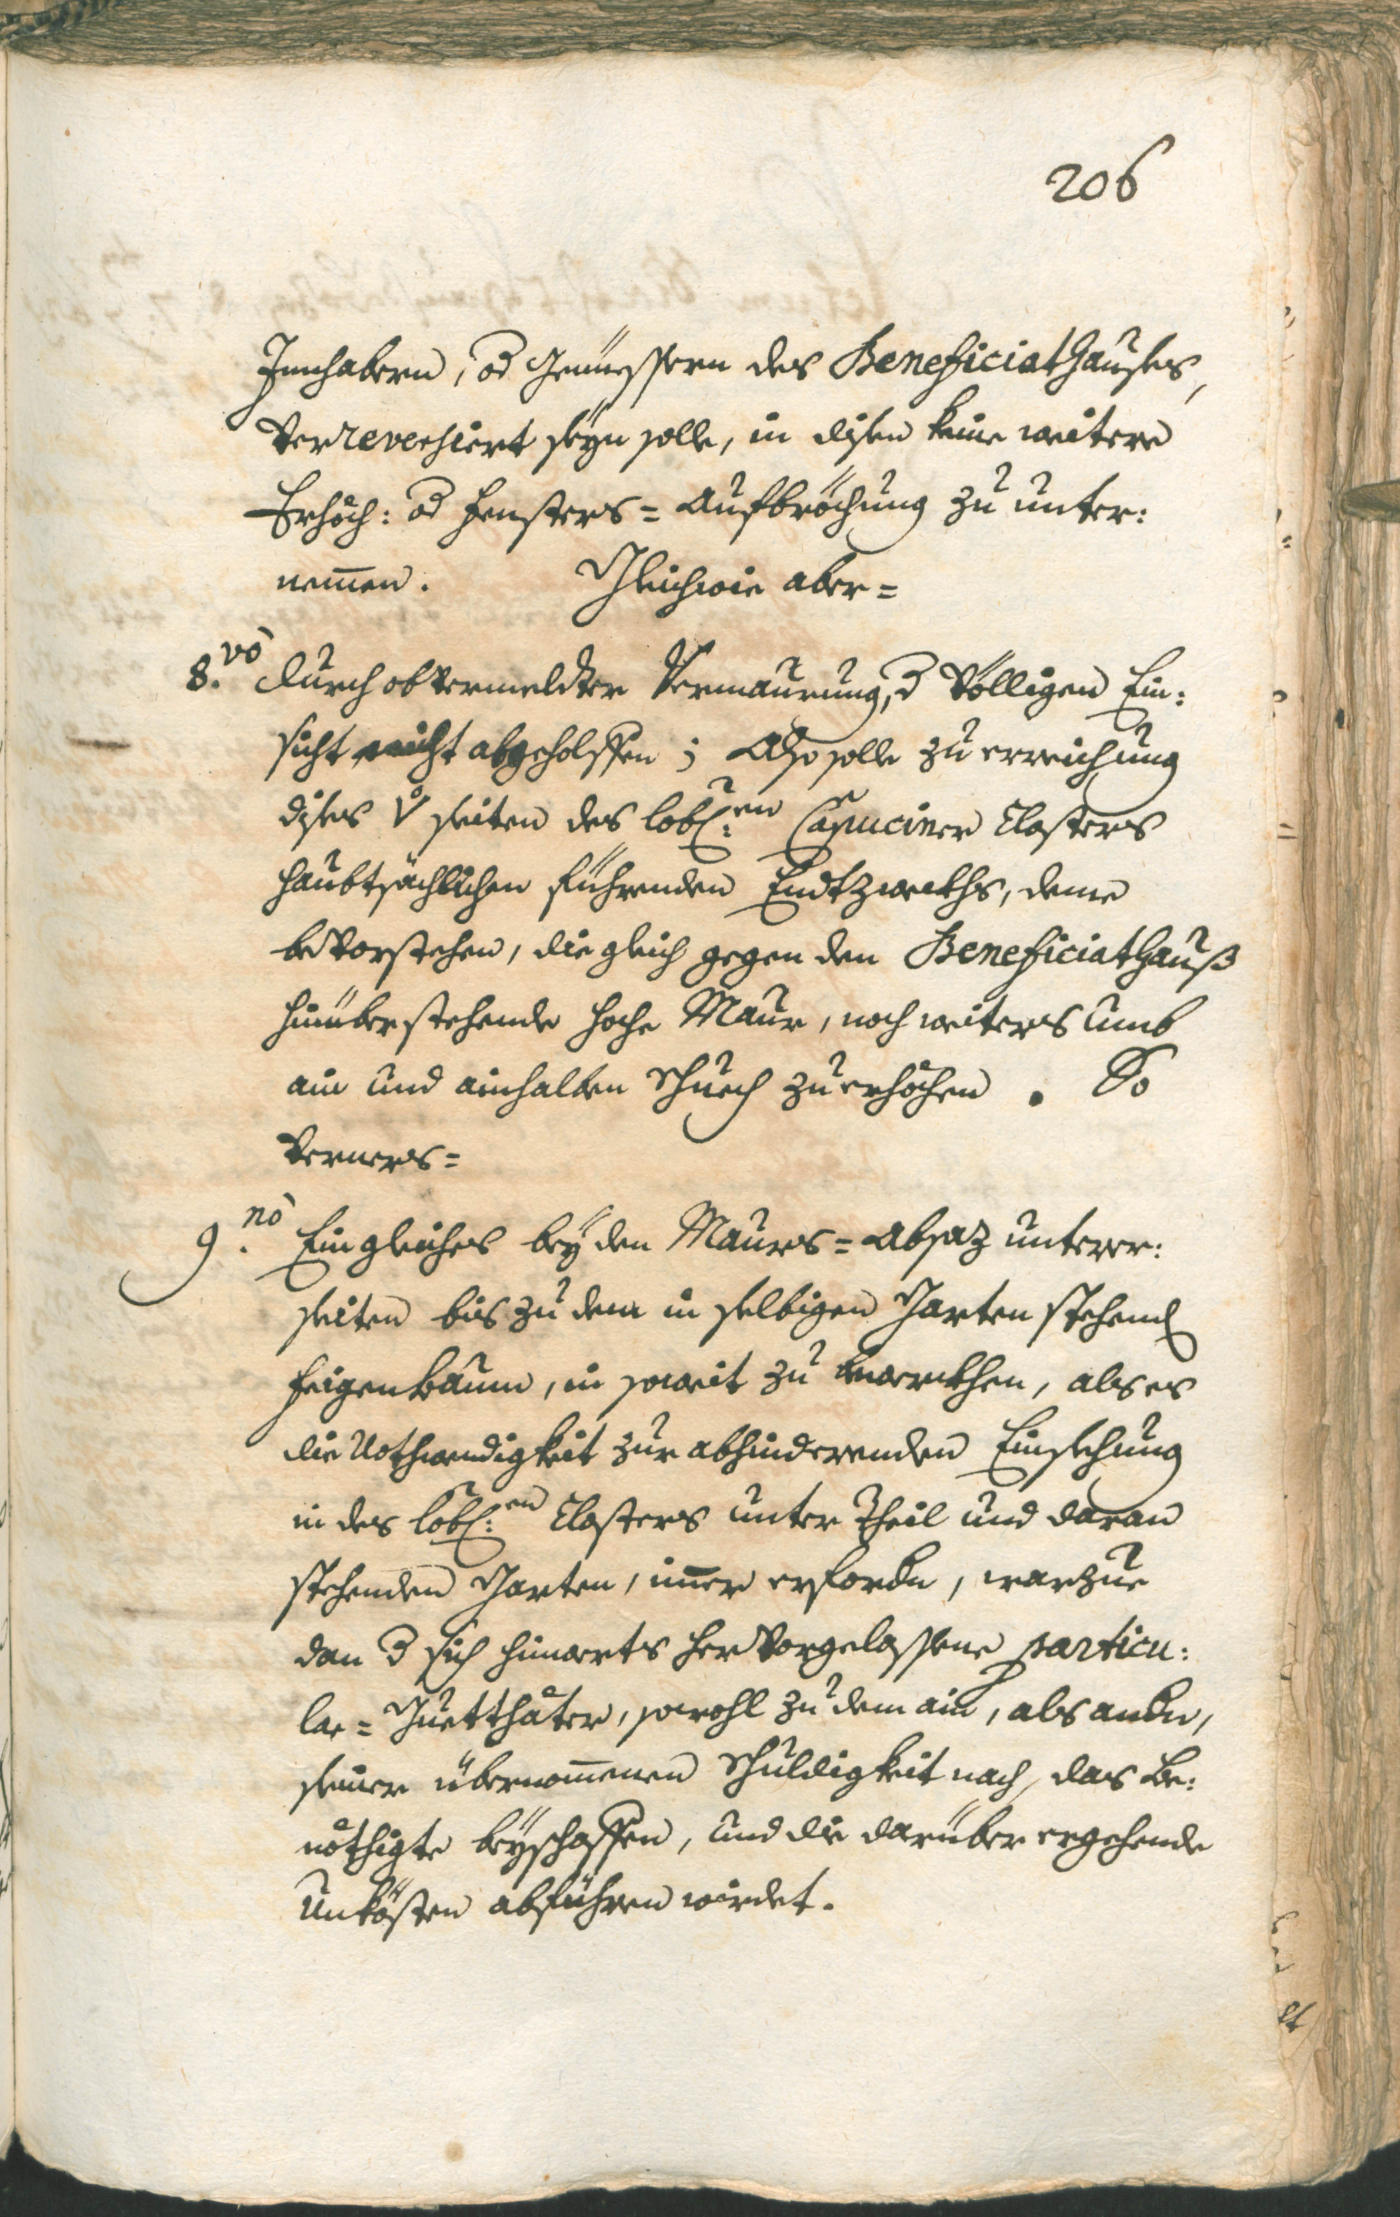 206
Innhabern, od Geniessern des Beneficiathauses,
verreversiert seyn solle, in disen keine weitere
Erhöch: od Fensters=Aufbröchung zu unter:
nemmen. Gleichwie aber=
8.vo durch obvermeldter Vermaurung, d völligen Ein:
sicht nicht abgeholffen; Also solle zu erreichung
dises v seiten des löbl:en Capuciner Closters
haubtsächlichen führenden Endtzwekhs, deme
bevorstehen, die gleich gegen den Beneficiathauß
hinüberstehende hoche Maur, noch weiters umb
ain und ainhalben Schuech zu erhöchen. So
verners=
9.no Ein gleiches bey den Maurs=Absaz unterer:
seiten bis zu dem in selbigen Garten stehend
Feigenbaum, in soweit zu bewerkhen, als es
die Nothwendigkeit zur abhinderenden Einsehung
in des löbl:en Closters unter Theil und daran
stehenden Garten, immer erfordn, warzue
dan d sich hinwerts hervorgelassene particu:
lar=Guetthäter, sowohl zu dem ain, als andn,
seiner übernommenen Schuldigkeit nach, das be:
nöthigte beyschaffen, und die darüber ergehende
Unkösten abführen wirdet.